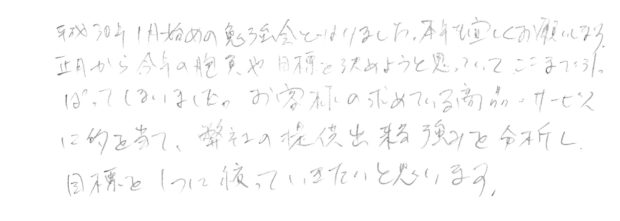 平成30年1月始めの勉強会となりました。本年も宜しくお願いします。
正月から今年の抱負や目標を決めようと思っていてここまでひっ
ぱってしまいました。お客様の求めている商品・サービス
に的を当て、弊社の提供出来る強みを分析し、
目標を1つに絞っていきたいと思います。